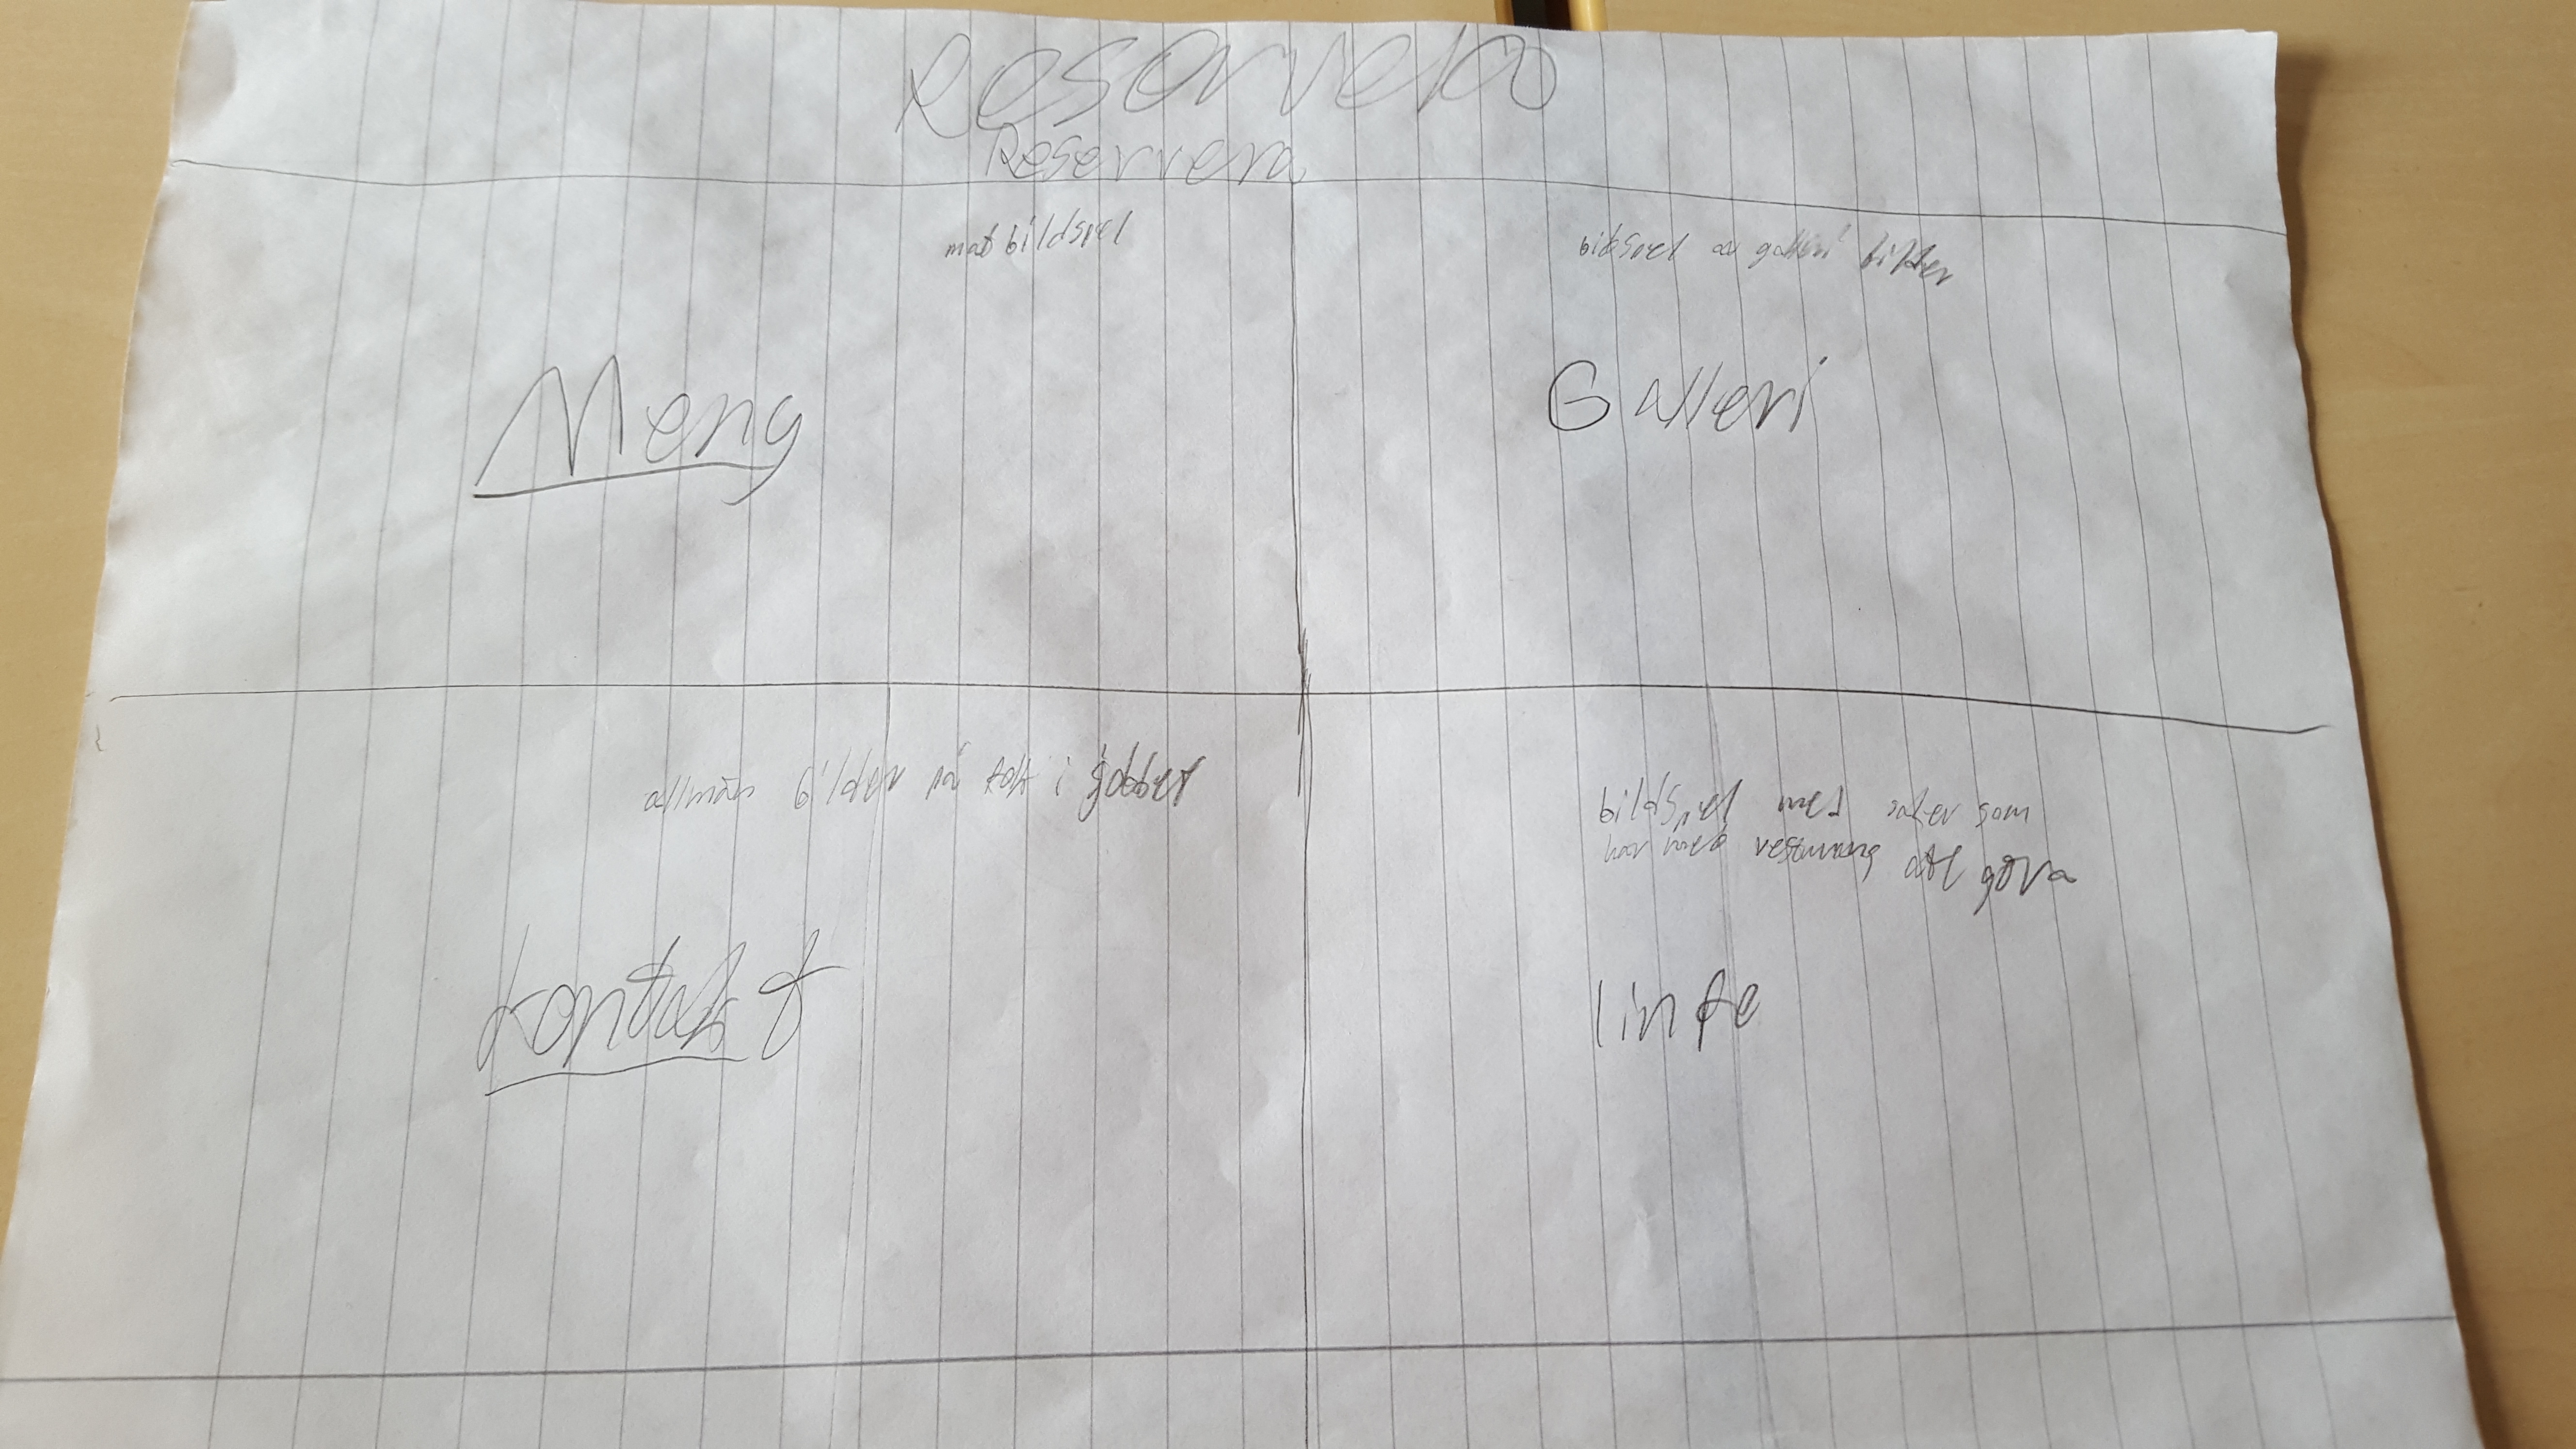 Reservera
mat bildspel
bildspel av galleri bilder
Meny
Galleri
allmän bilder på folk i jobbet
bildspel med saker som
har med resturang att göra
kontakt
info